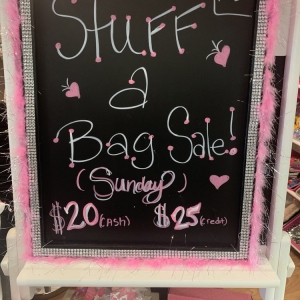 Stuff
a
Bag Sale!
(Sunday)
$20 (Cash) $25 (Credit)